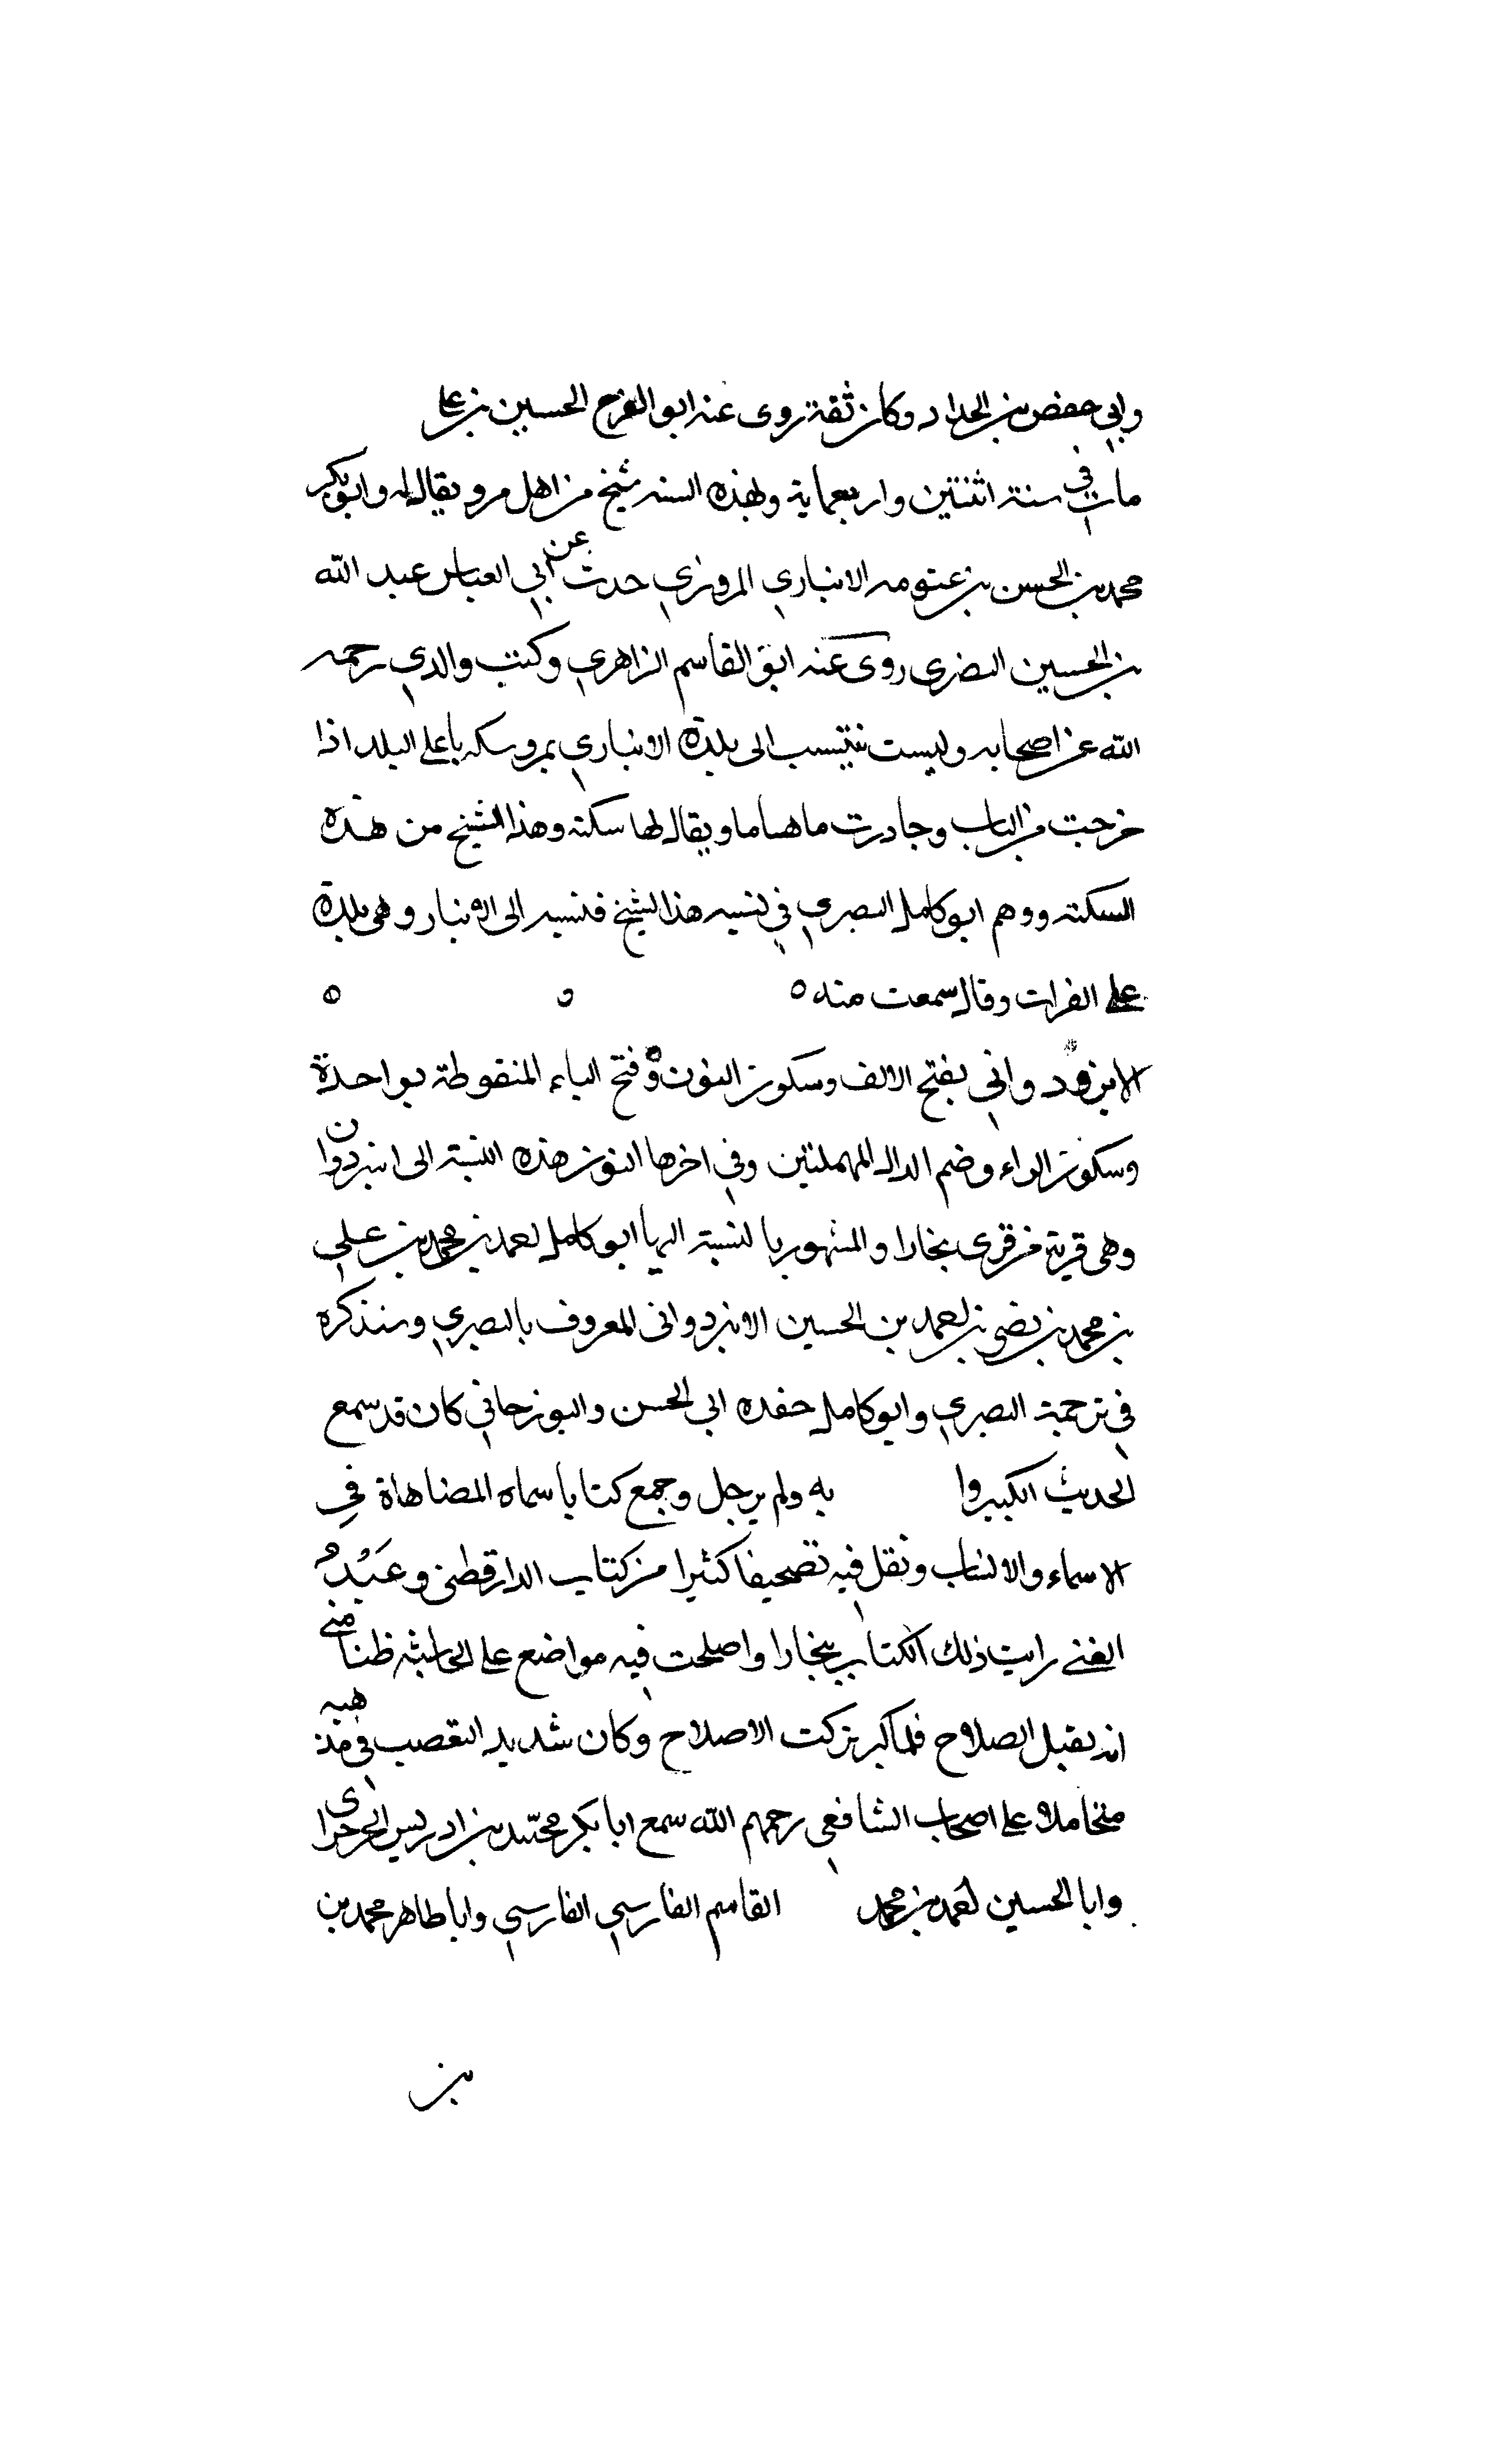 وابي حفص بن الحداد وكان ثقة روى عنه ابو الفرج الحسين بن علي
مات في سنة اثنتين واربعماية ولهذه السنه شيخ من اهل مرو يقال له وابو بكر
محمد بن الحسن بن عبويه الانباري المروزي حدث عن ابي العباس عبد الله
بن الحسين النضري روى عنه ابو القاسم الزاهري وكتب والدي رحمه
الله عن اصحابه وليست تنتسب الى بلدة الانباري بمرو سكه باعلى البلد اذا
خرجت من الباب وجاورت ويقال لها سكة وهذا الشيخ من هذه
السكته ووهم ابو كامل البصري في نسبه هذا الشيخ فنسبه الى الانبار وهي بلدة
على الفرات وقال سمعت منه ه ه ه
الانبردواني بفتح الالف وسكون النون وفتح الباء المنقوطة بواحدة
وسكون الراء وضم الدال المهملتين وفي اخرها النون هذه النسبة الى انبردوان
وهي قرية من قرى بخارا والمشهور بالنسبة اليها ابو كامل احمد بن محمد بن علي
بن محمد بن بصير بن احمد بن الحسين الانبردواني المعروف بالبصري وسنذكره
في ترجمة البصري وابو كامل حفده ابي الحسن والبوزجاني كان قد سمع
الحديث الكبيروا به ولم يرحل وجمع كتابا سماه المضاهاة في
الاسماء والانساب ونقل فيه تصحيفا كثيرا من كتاب الدارقطني وعَبْدُ
الغني رايت ذلك الكتاب ببخارا واصلحت فيه مواضع على الحاشيه ظنا مني
انه يقبل الصلاح فلما كبر تركت الاصلاح وكان شديد التعصب في مذهبه
متحاملا على اصحاب الشافعي رحمهم الله سمع ابا بكر محمد بن ادريس الجرجرائي
وابا الحسين احمد بن محمد القاسم الفارسي الفارسي وابا طاهر محمد بن
بن